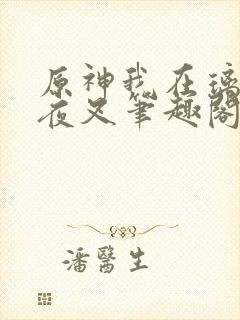 原神我在璃
夜叉笔趣阁
潘医生